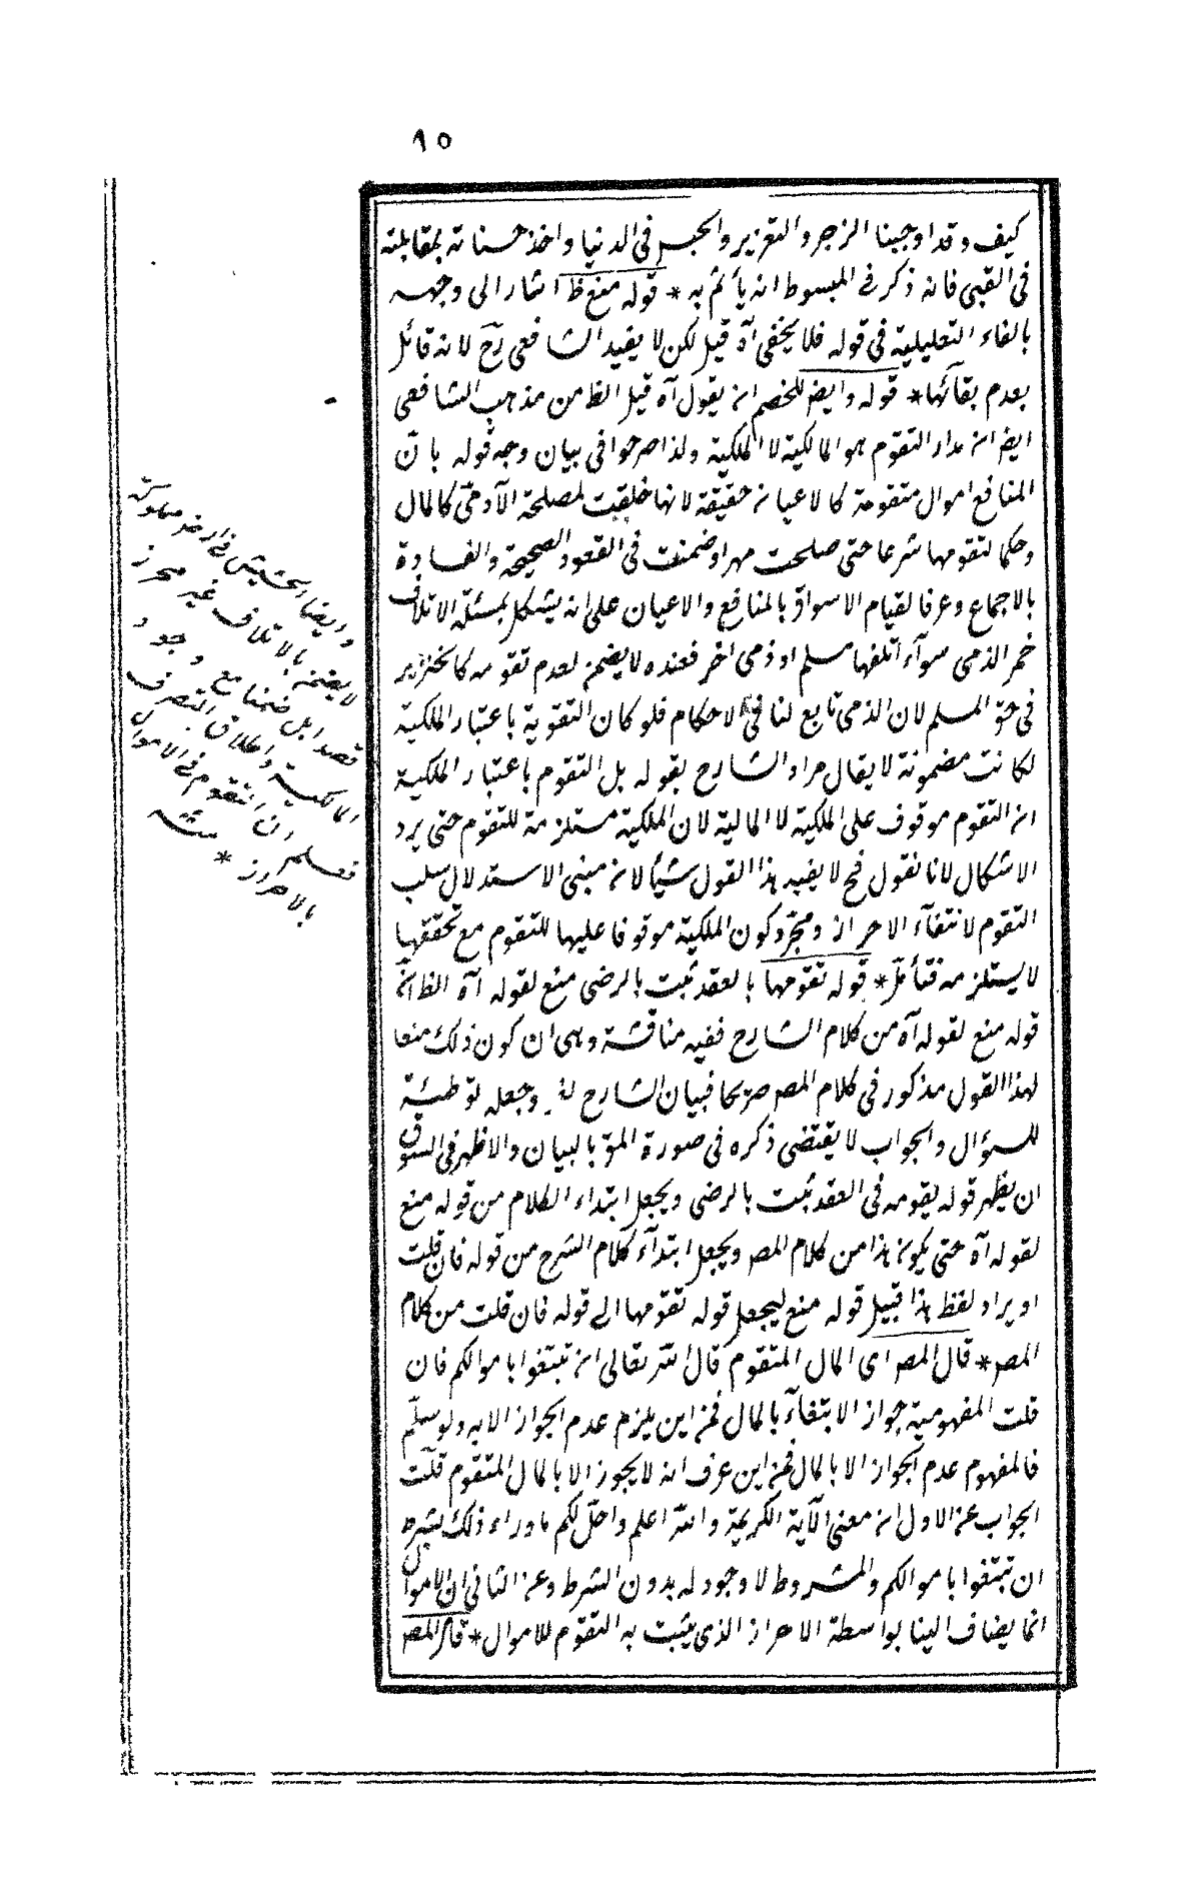 ٩٥
كيف وقد اوجبنا الزجر والتعزير والحبس فى الدنيا واخذ حسناته بمقابلته
فى العقبى فانه ذكر فى المبسوط انه يأثم به * قوله منع ظ اشار الى وجهه
بالفاء التعليلية فى قوله فلا يخفى آه قيل لكن لا يفيد الشافعى رح لانه قائل
بعدم بقآئها * قوله وايضا للخصم ان يقول آه قيل الظ من مذهب الشافعى
ايضا ان مدار التقوم هو المالكية لا الملكية ولذا صرحوا فى بيان وجه قوله بان
المنافع اموال متقومة كالاعيان حقيقة لانها خلقت لمصلحة الآدمى كالمال
وحكما لتقومها شرعا حتى صلحت مهرا وضمنت فى العقود الصحيحة والفاسدة
بالاجماع وعرفا لقيام الاسواق بالمنافع والاعيان على انه يشكل بمسئلة الاتلاف
خمر الذمى سوآء اتلفها مسلم او ذمى اخر فعنده لا يضمن لعدم تقومه كالخنزير
فى حق المسلم لان الذمى تابع لنا فى الاحكام فلو كان التقوية باعتبار الملكية
لكانت مضمونة لا يقال مراد الشارح بقوله بل التقوم باعتبار الملكية
ان التقوم موقوف على الملكية لا المالية لان الملكية مستلزمة للتقوم حتى يرد
الاشكال لانا نقول فح لا يفيد هذا القول شيأ لان مبنى الاستدلال سلب
التقوم لانتفآء الاحراز ومجرد كون الملكية موقوفا عليها للتقوم مع تحققها
لا يستلزمه فتأمل * قوله تقومها بالعقد ثبت بالرضى منع لقوله آه الظ ان
قوله منع لقوله آه من كلام الشارح ففيه مناقشة وهى ان كون ذلك منعا
لهذا القول مذكور فى كلام المص صريحا فبيان الشارح له وجعله توطئة
للسؤال والجواب لا يقتضى ذكره فى صورة المق بالبيان والاظهر فى السوق
ان يظهر قوله يقومه فى العقد ثبت بالرضى ويجعل ابتداء الكلام من قوله منع
لقوله آه حتى يكون هذا من كلام المص ويجعل ابتدآء كلام الشرح من قوله فان قلت
او يراد لفظ هذا قبيل قوله منع ليجعل قوله تقومها الى قوله فان قلت من كلام
المص * قال المص اى المال المتقوم قال الله تعالى ان تبتغوا باموالكم فان
قلت المفهومية جواز الابتغآء بالمال فمن اين يلزم عدم الجواز الا به ولو سلم
فالمفهوم عدم الجواز الا بالمال فمن اين عرف انه لا يجوز الا بالمال المتقوم قلت
الجواب عن الاول ان معنى الآية الكريمة والله اعلم واحل لكم ما وراء ذلك بشرط
ان تبتغوا باموالكم والمشروط لا وجود له بدون الشرط وعن الثانى ان الاموال
انما يضاف الينا بواسطة الاحراز الذى يثبت به التقوم للاموال * قال المص
وايضا الحشيش فى ارض مملوكة
لا يضمن بالاتلاف غير محرز
قصدا بل ضمنا مع وجود
المالكية واطلاق التصرف
فعلم ان التقوم فى الاموال
بالاحراز * منه